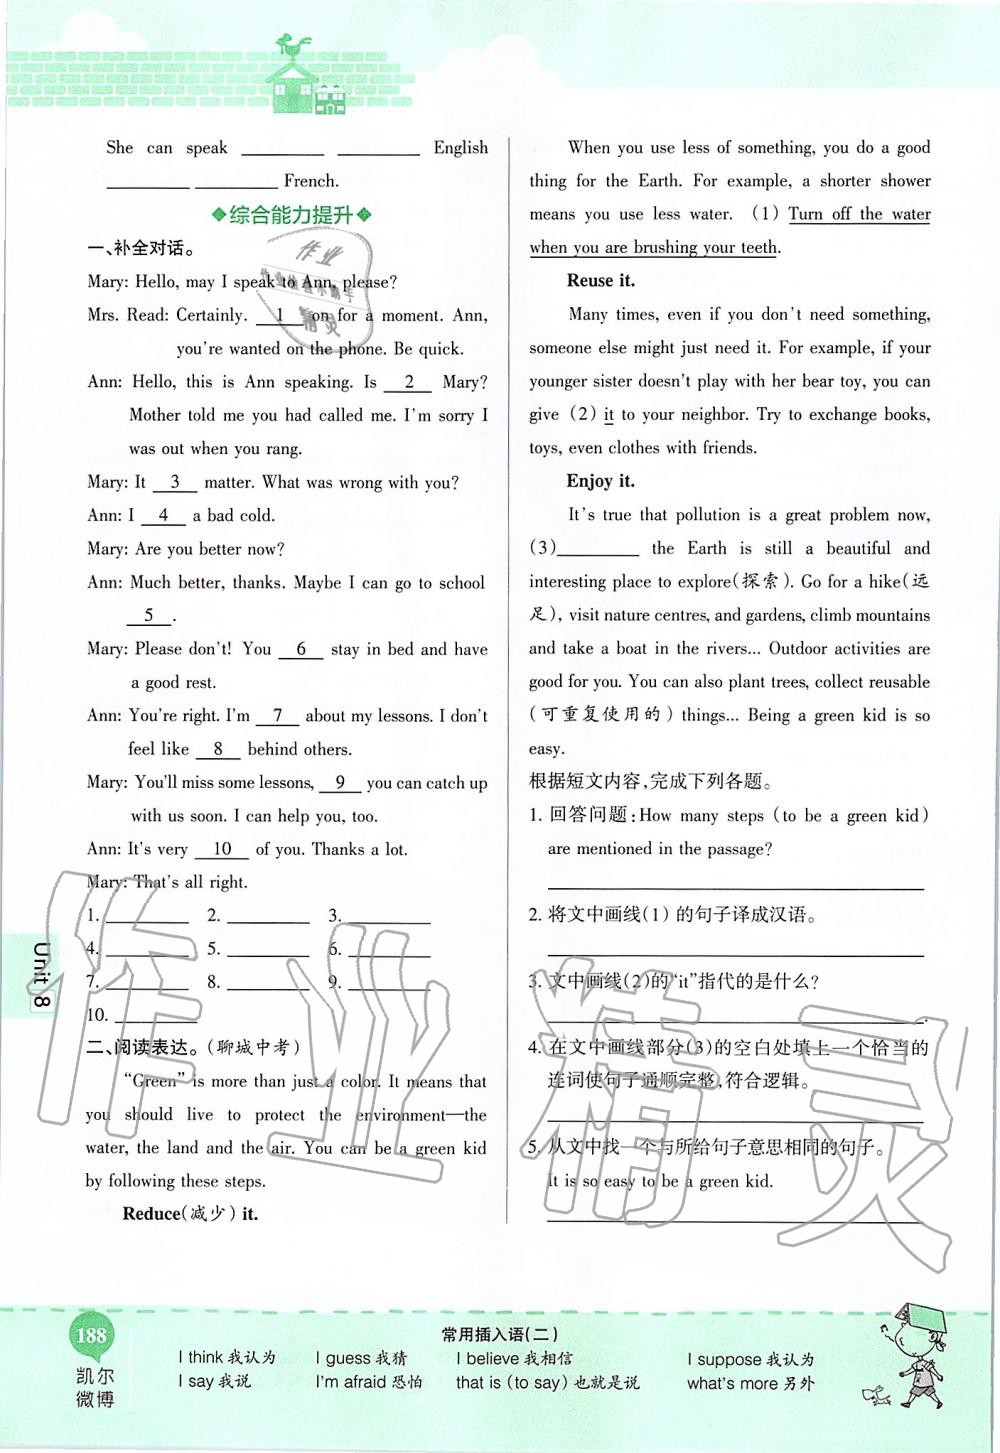 She can speak ________ ________ English
________ ________ French.
◆综合能力提升◆
一、补全对话。
Mary: Hello, may I speak to Ann, please?
Mrs. Read: Certainly. 1 on for a moment. Ann,
you're wanted on the phone. Be quick.
Ann: Hello, this is Ann speaking. Is 2 Mary?
Mother told me you had called me. I'm sorry I
was out when you rang.
Mary: It 3 matter. What was wrong with you?
Ann: I 4 a bad cold.
Mary: Are you better now?
Ann: Much better, thanks. Maybe I can go to school
5 .
Mary: Please don't! You 6 stay in bed and have
a good rest.
Ann: You're right. I'm 7 about my lessons. I don't
feel like 8 behind others.
Mary: You'll miss some lessons, 9 you can catch up
with us soon. I can help you, too.
Ann: It's very 10 of you. Thanks a lot.
Mary: That's all right.
1. ________ 2. ________ 3. ________
4. ________ 5. ________ 6. ________
7. ________ 8. ________ 9. ________
10. ________
二、阅读表达。(聊城中考)
"Green" is more than just a color. It means that
you should live to protect the environment—the
water, the land and the air. You can be a green kid
by following these steps.
Reduce(减少) it.
When you use less of something, you do a good
thing for the Earth. For example, a shorter shower
means you use less water. (1) Turn off the water
when you are brushing your teeth.
Reuse it.
Many times, even if you don't need something,
someone else might just need it. For example, if your
younger sister doesn't play with her bear toy, you can
give (2) it to your neighbor. Try to exchange books,
toys, even clothes with friends.
Enjoy it.
It's true that pollution is a great problem now,
(3)________ the Earth is still a beautiful and
interesting place to explore(探索). Go for a hike(远
足), visit nature centres, and gardens, climb mountains
and take a boat in the rivers... Outdoor activities are
good for you. You can also plant trees, collect reusable
(可重复使用的) things... Being a green kid is so
easy.
根据短文内容,完成下列各题。
1. 回答问题:How many steps (to be a green kid)
are mentioned in the passage?
2. 将文中画线(1)的句子译成汉语。
3. 文中画线(2)的"it"指代的是什么?
4. 在文中画线部分(3)的空白处填上一个恰当的
连词使句子通顺完整,符合逻辑。
5. 从文中找一个与所给句子意思相同的句子。
It is so easy to be a green kid.
Unit 8
作业精灵
188
凯尔
微博
常用插入语(二)
I think 我认为 I guess 我猜 I believe 我相信 I suppose 我认为
I say 我说 I'm afraid 恐怕 that is (to say) 也就是说 what's more 另外